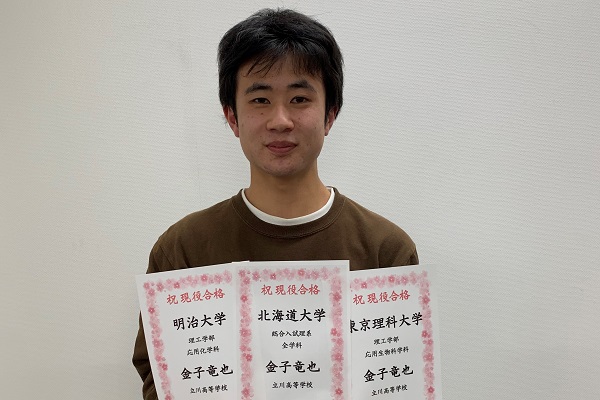 祝現役合格
明治大学
理工学部
応用化学科
金子竜也
立川高等学校
祝現役合格
北海道大学
総合入試理系
全学科
金子竜也
立川高等学校
祝現役合格
東京理科大学
理工学部
応用生物科学科
金子竜也
立川高等学校